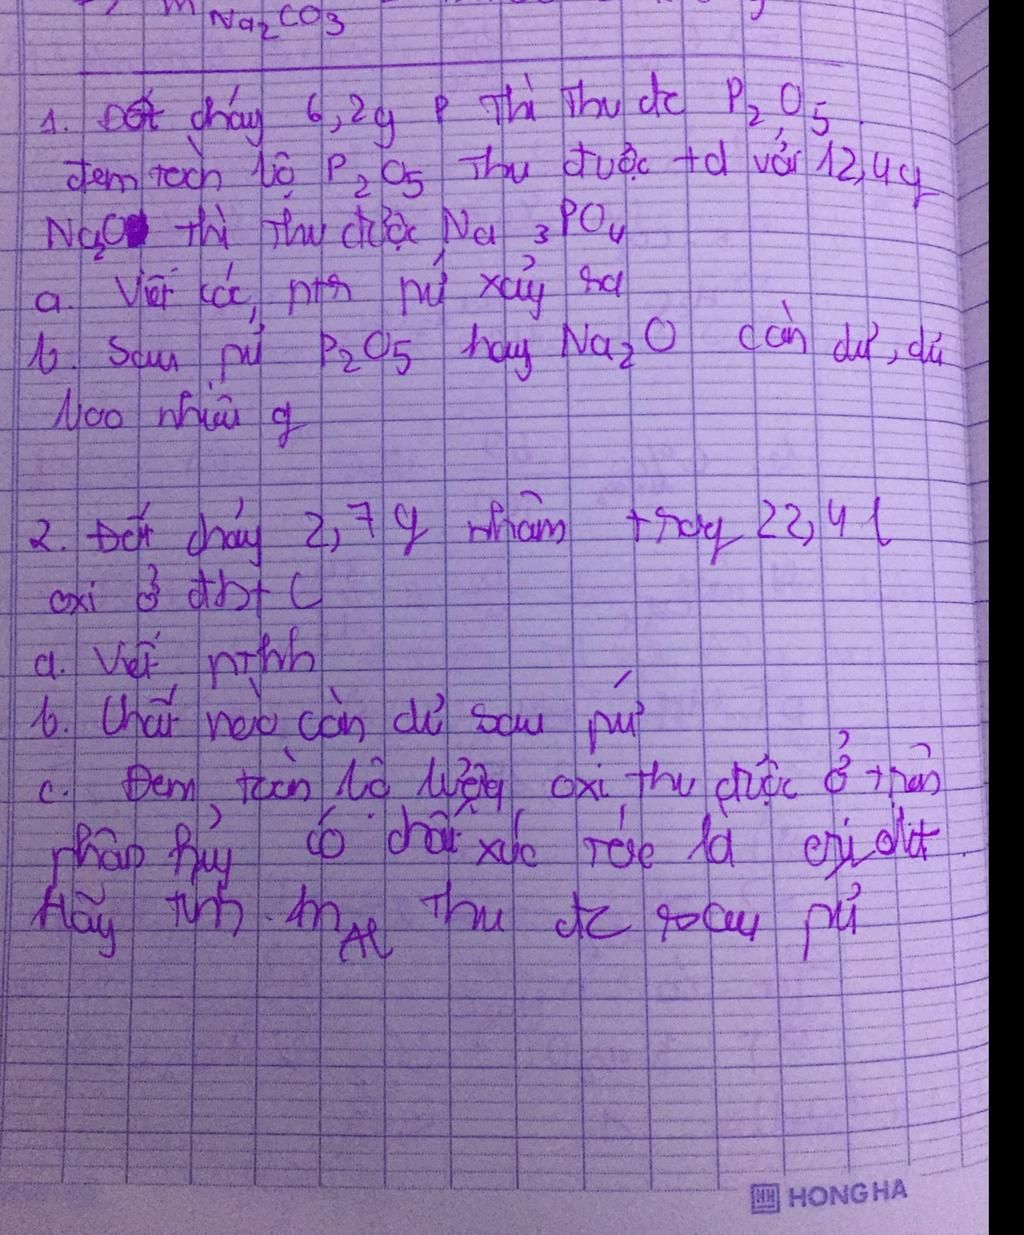 Na₂CO₃
1. Đốt cháy 6,2g P thì thu đc P₂O₅
đem toàn bộ P₂O₅ thu được td với 12,4g
Na₂O thì thu được Na₃PO₄
a. Viết các, pth pứ xảy ra
b. Sau pứ P₂O₅ hay Na₂O còn dư, dư
bao nhiêu g
2. Đốt cháy 2,7g nhôm trog 22,4l
oxi ở đktc
a. Viết pthh
b. Chất nào còn dư sau pứ
c. Đem toàn bộ lượng oxi thu được ở trên
phân hủy có chất xúc tác là
Hãy tính m Al thu đc sau pứ
HONG HA